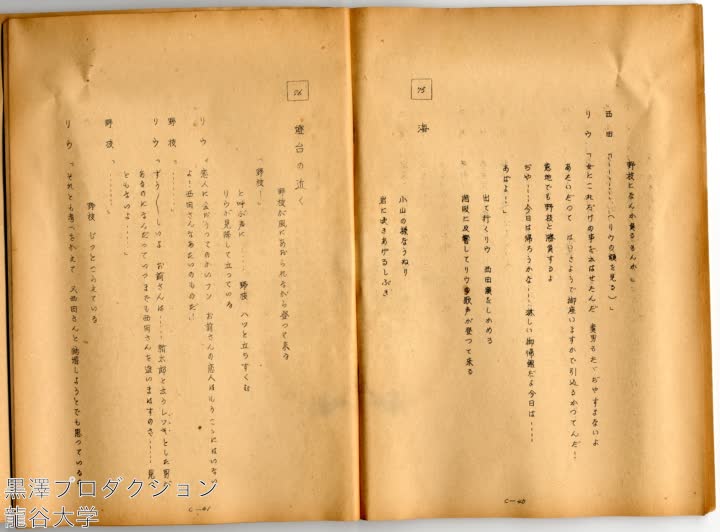 野枝になんか負けるもんか」
西田「‥‥‥‥」(リウの顔を見る)
リウ「女にこれだけの事を云はせたんだ
あたいだって はいさようで御座いますかで引込るかってんだ!
意地でも野枝と勝負するよ
おや‥‥今日は帰ろうかな‥‥淋しい御帰還だよ今日は‥‥
あばよー」
出て行くリウ 西田扉をしめる
階段に反響してリウの歌声が登って来る
75 海
小山の様なうねり
岩に吹きあげるしぶき
C-40
76 燈台の近く
野枝が風にあほられながら登って来る
「野枝ー」
と呼ぶ声に‥‥ 野枝 ハッと立ちすくむ
リウが見降して立っている
リウ「恋人に会おうってのかいフン お前さんの恋人はもうこゝにはいない
よ! 西田さんはあたいのものだ!
野枝「‥‥‥‥
リウ「ずうずうしいよ お前さんは‥‥ 太郎と立りレッキとした男が
あるのになんだっていつまでも西田さんを追いまはすのさ‥‥ 見
ともないよ‥‥」
野枝「‥‥‥‥」
野枝 ジッとこらえている
リウ「それとも考へをかえて 又西田さんと結婚しようとでも思っている
C-41
黒澤プロダクション
龍谷大学